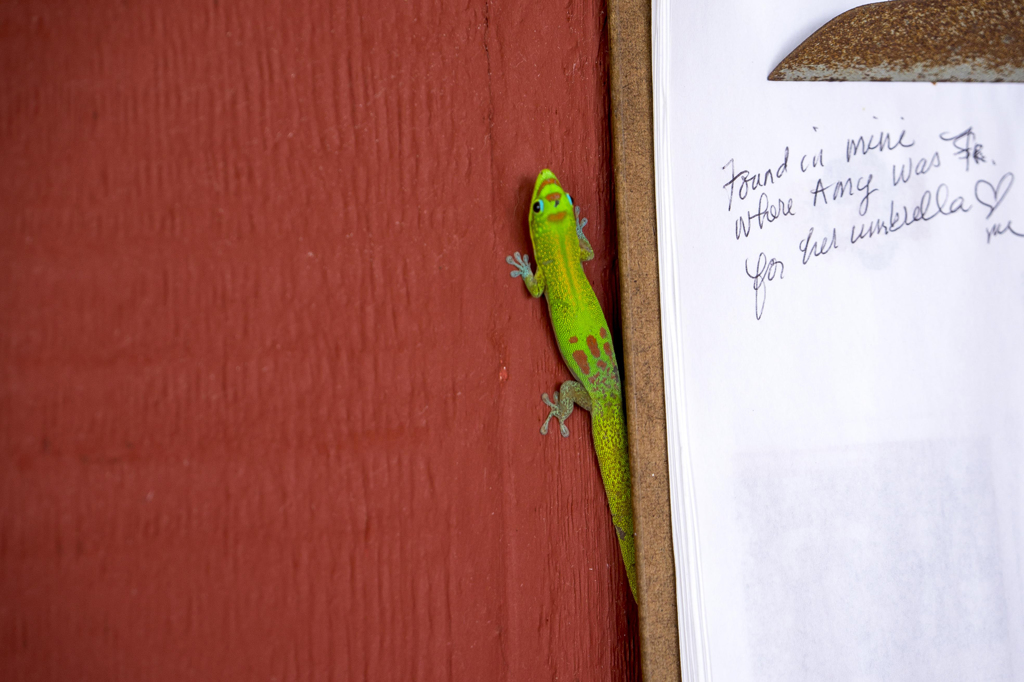 Found in mini
where Amy was
for her umbrella ♡
me